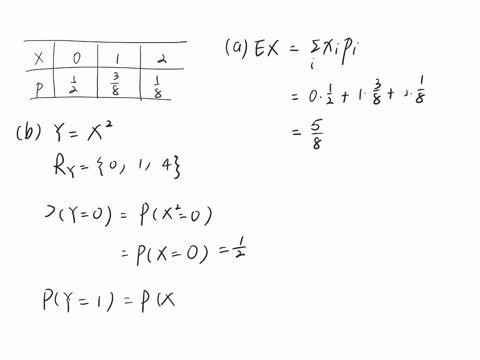 X 0 1 2
P 1/2 3/8 1/8
(a) EX = Σ_i x_i p_i
= 0·1/2 + 1·3/8 + 2·1/8
= 5/8
(b) Y = X²
R_Y = {0, 1, 4}
P(Y=0) = P(X²=0)
= P(X=0) = 1/2
P(Y=1) = P(X